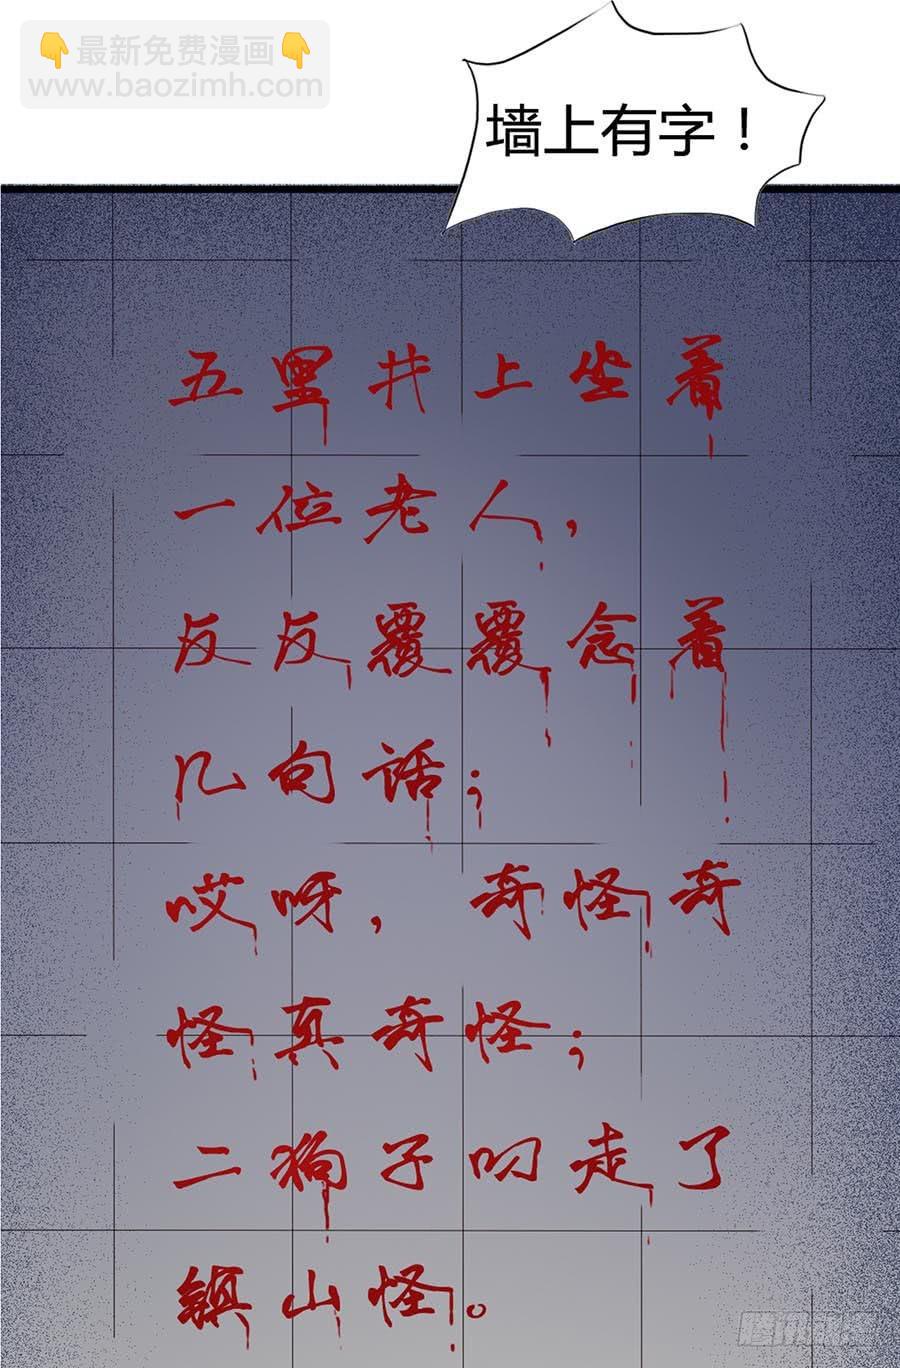 👇最新免费漫画👇
www.baozimh.com
墙上有字！
五里井上坐着
一位老人，
反反覆覆念着
几句话；
哎呀，奇怪奇
怪真奇怪；
二狗子叼走了
镇山怪。
腾讯动漫